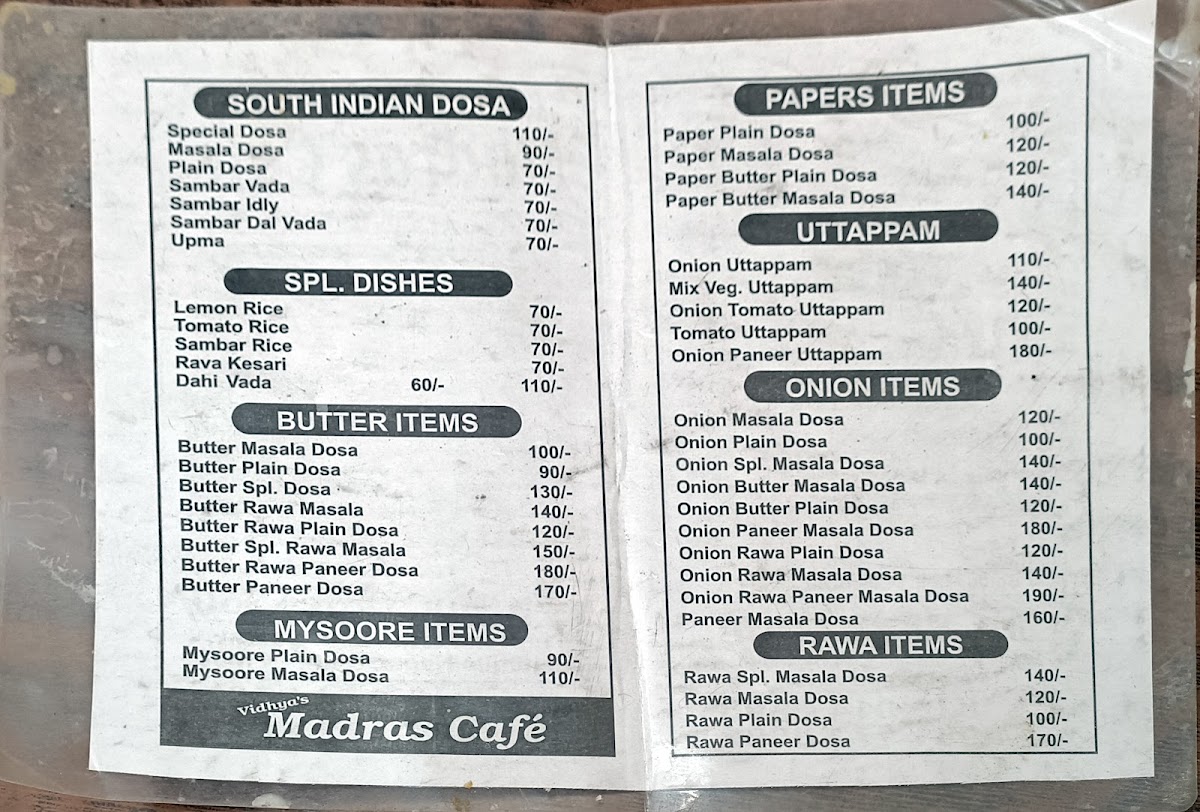 SOUTH INDIAN DOSA
Special Dosa 110/-
Masala Dosa 90/-
Plain Dosa 70/-
Sambar Vada 70/-
Sambar Idly 70/-
Sambar Dal Vada 70/-
Upma 70/-
SPL. DISHES
Lemon Rice 70/-
Tomato Rice 70/-
Sambar Rice 70/-
Rava Kesari 70/-
Dahi Vada 60/- 110/-
BUTTER ITEMS
Butter Masala Dosa 100/-
Butter Plain Dosa 90/-
Butter Spl. Dosa 130/-
Butter Rawa Masala 140/-
Butter Rawa Plain Dosa 120/-
Butter Spl. Rawa Masala 150/-
Butter Rawa Paneer Dosa 180/-
Butter Paneer Dosa 170/-
MYSOORE ITEMS
Mysoore Plain Dosa 90/-
Mysoore Masala Dosa 110/-
Vidhya's
Madras Café
PAPERS ITEMS
Paper Plain Dosa 100/-
Paper Masala Dosa 120/-
Paper Butter Plain Dosa 120/-
Paper Butter Masala Dosa 140/-
UTTAPPAM
Onion Uttappam 110/-
Mix Veg. Uttappam 140/-
Onion Tomato Uttappam 120/-
Tomato Uttappam 100/-
Onion Paneer Uttappam 180/-
ONION ITEMS
Onion Masala Dosa 120/-
Onion Plain Dosa 100/-
Onion Spl. Masala Dosa 140/-
Onion Butter Masala Dosa 140/-
Onion Butter Plain Dosa 120/-
Onion Paneer Masala Dosa 180/-
Onion Rawa Plain Dosa 120/-
Onion Rawa Masala Dosa 140/-
Onion Rawa Paneer Masala Dosa 190/-
Paneer Masala Dosa 160/-
RAWA ITEMS
Rawa Spl. Masala Dosa 140/-
Rawa Masala Dosa 120/-
Rawa Plain Dosa 100/-
Rawa Paneer Dosa 170/-